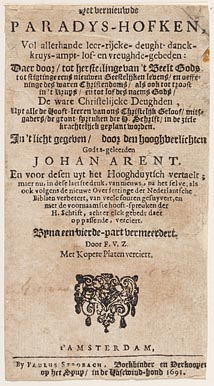 Het vernieuwde
PARADYS-HOFKEN,
Vol allerhande leer-rijcke- deught- danck-
kruys- ampt- lof- en vreughde-gebeden:
Daer door/ tot herstellinge van 't Beelt Gods
tot stigtinge eens nieuwen Geestelijken levens/ en oeffe-
ninge des waren Christendoms/ als ook tot troost
in 't kruys/ en tot lof des naems Gods/
De ware Christelijcke Deughden,
Uyt alle de Hooft-leeren van ons Christelijk Geloof/ mits-
gaders/ de gront-spreuken der H. Schrift/ in de ziele
krachtelijck geplant worden.
In 't licht gegeven/ door den hooghverlichten
Godts-geleerden
JOHAN ARENT.
En voor desen uyt het Hooghduytsch vertaelt;
maer nu, in dese laetste druk, van nieuws, na het selve, als
ook volgens de nieuwe Oversettinge der Nederlantsche
Biblien verbetert, van veele fouten gesuyvert, en
met de voornaamste hooft-spreuken der
H. Schrift, achter elck gebedt daer
op passende, verciert.
Byna een vierde-part vermeerdert.
Door F. V. Z.
Met Kopere Platen verciert.
t'AMSTERDAM,
By PAULUS Boekbinder en Verkooper
op het Spuy/ in de Gasewind-hond 1691.